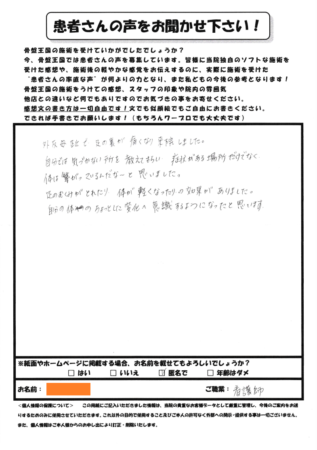 患者さんの声をお聞かせ下さい！
骨盤王国の施術を受けていかがでしたでしょうか？
今、骨盤王国では患者さんの声を募集しています。皆様に当院独自のソフトな施術を
受けた感想や、施術後の軽やかな感覚をお伝えするのに、実際に施術を受けた
“患者さんの率直な声”が何よりの力となり、また私どもの今後の参考となります！
骨盤王国の施術をうけての感想、スタッフの印象や院内の雰囲気
他店との違いなど何でもありですのでお気づきの事をお寄せください。
感想文の書き方は一切自由です！文でも似顔絵でもご自由にお書きください。
できれば手書きでお願いします！（もちろんワープロでも大丈夫です）
足の裏が痛くなり来院しました。
自分では気づかない 教えてもらい 症状がある場所だけでなく
体は繋がっているんだなーと思いました。
足のむくみがとれたり 体が軽くなったりの効果がありました。
自分の体の ちょっとした変化の 意識するようになったと思います
※紙面やホームページに掲載する場合、お名前を載せてもよろしいでしょうか？
□ はい □ いいえ ☑ 匿名で □ 年齢はダメ
お名前： ご職業： 看護師
＜個人情報の保護について＞ この用紙にご記入いただきました情報は、当院の貴重なお客様データとして厳重に管理し、今後のご案内をお送
りするためのみに使用させていただきます。これ以外の目的で使用すること及びご本人の許可なく外部への開示・提供する事は一切ございません。
また、個人情報はご本人様からのお申し出により訂正・削除いたします。